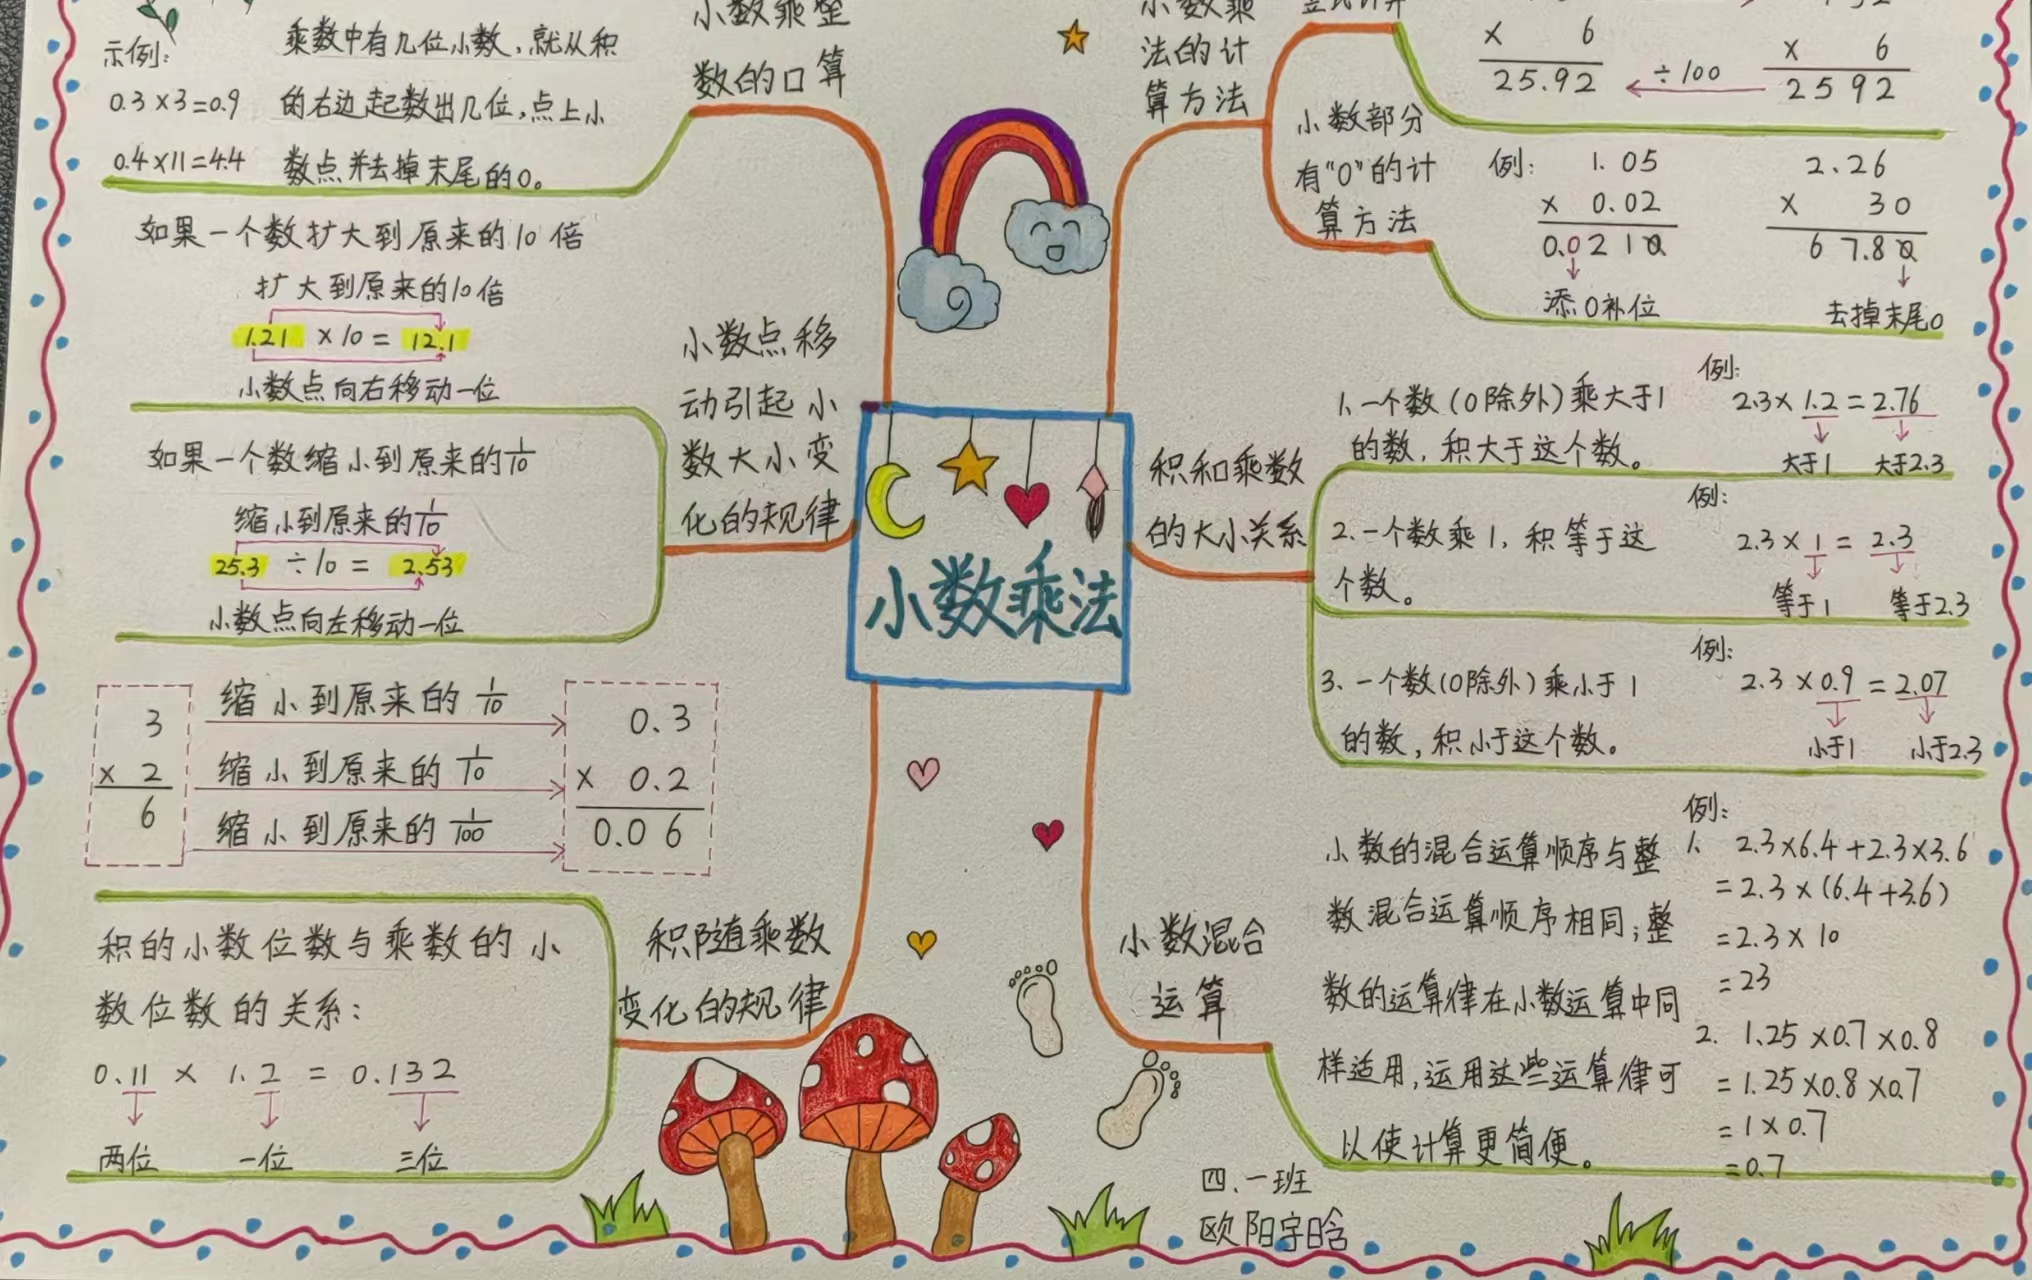 小数乘整
数的口算
示例:
0.3×3=0.9
0.4×11=4.4
乘数中有几位小数,就从积
的右边起数出几位,点上小
数点并去掉末尾的0。
小数点移
动引起小
数大小变
化的规律
如果一个数扩大到原来的10倍
扩大到原来的10倍
1.21 ×10= 12.1
小数点向右移动一位
如果一个数缩小到原来的1/10
缩小到原来的1/10
25.3 ÷10= 2.53
小数点向左移动一位
3
× 2
6
缩小到原来的1/10
缩小到原来的1/10
缩小到原来的1/100
0.3
× 0.2
0.06
积随乘数
变化的规律
积的小数位数与乘数的小
数位数的关系:
0.11 × 1.2 = 0.132
两位 一位 三位
小数乘法
小数乘
法的计
算方法
× 6
25.92
÷100
× 6
2592
小数部分
有"0"的计
算方法
例:
1.05
× 0.02
0.0210
添0补位
2.26
× 30
67.80
去掉末尾0
积和乘数
的大小关系
1、一个数(0除外)乘大于1
的数,积大于这个数。
例:
2.3×1.2=2.76
大于1 大于2.3
2.一个数乘1,积等于这
个数。
例:
2.3×1=2.3
等于1 等于2.3
3.一个数(0除外)乘小于1
的数,积小于这个数。
例:
2.3×0.9=2.07
小于1 小于2.3
小数混合
运算
小数的混合运算顺序与整
数混合运算顺序相同;整
数的运算律在小数运算中同
样适用,运用这些运算律可
以使计算更简便。
例:
1、 2.3×6.4+2.3×3.6
=2.3×(6.4+3.6)
=2.3×10
=23
2. 1.25×0.7×0.8
=1.25×0.8×0.7
=1×0.7
=0.7
四.一班
欧阳宇晗